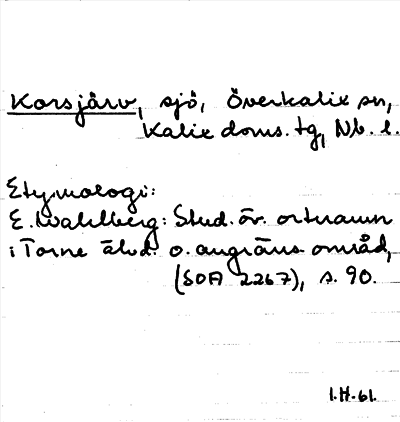 Korsjärv, sjö, Överkalix sn,
Kalix doms. tg, Nb. l.
Etymologi:
E. Wahlberg: Stud. öv. ortnamn
i Torne älvd. o. angräns. områd,
(SOA 2267), s. 90.
I.H-61.